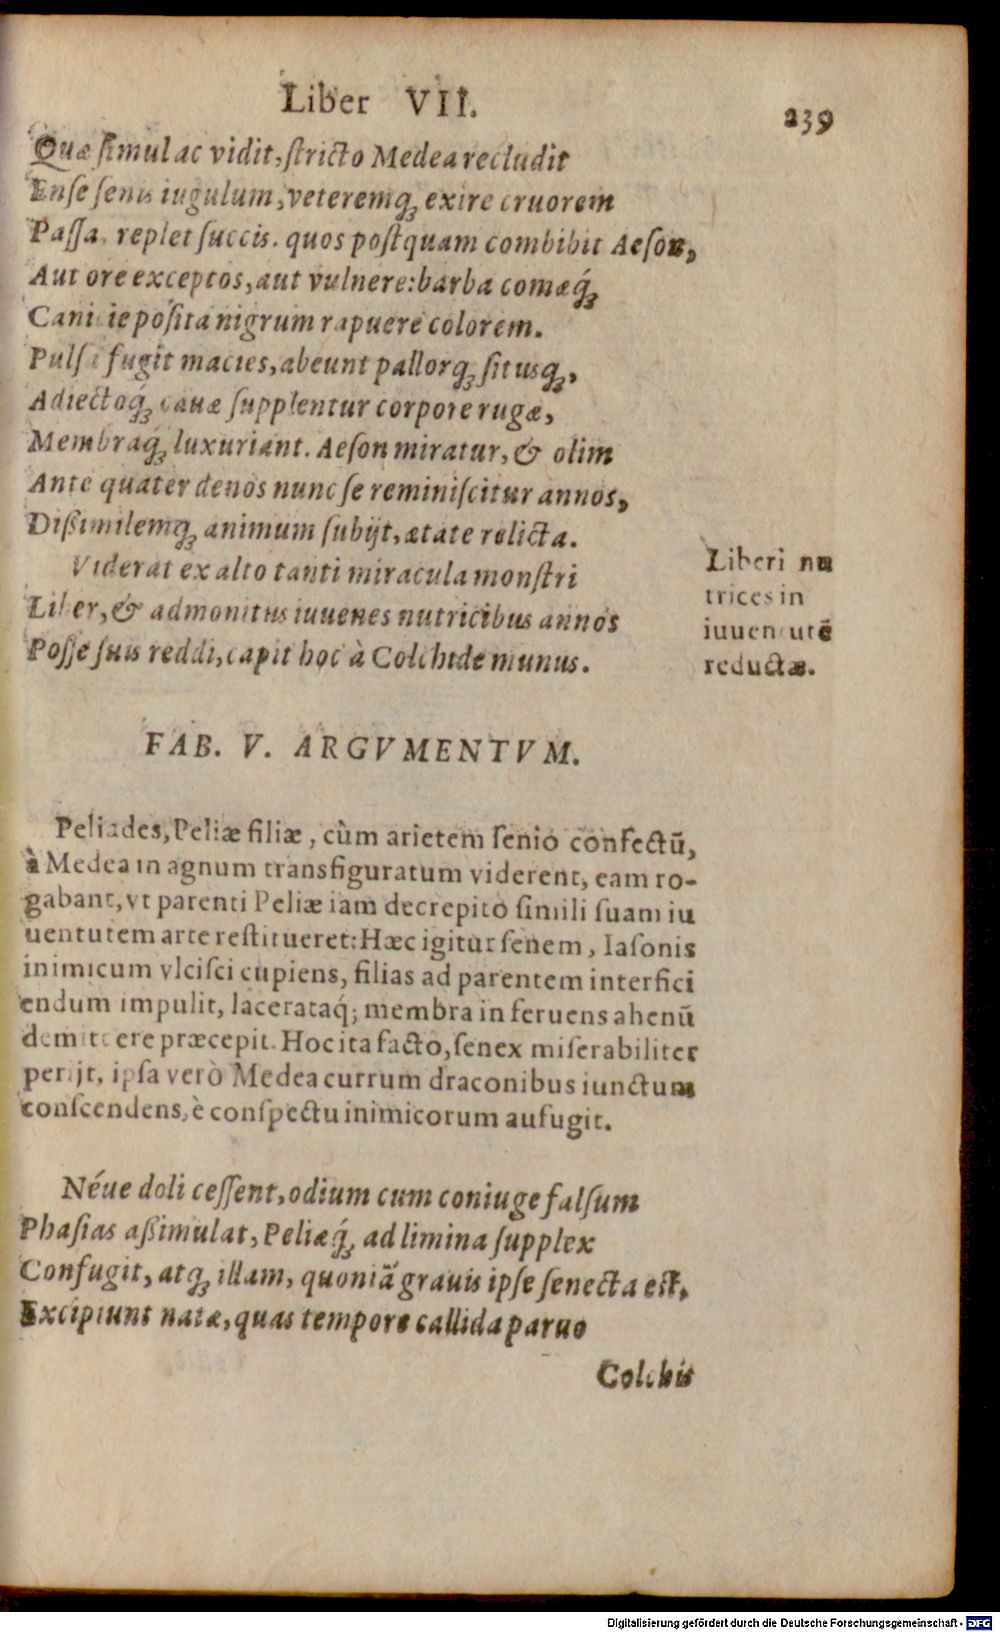 Liber VII.
239
Quæ ſimul ac vidit, ſtricto Medea recludit
Enſe ſenis iugulum, veteremq́; exire cruorem
Paſſa, replet ſuccis. quos poſtquam combibit Aeſon,
Aut ore exceptos, aut vulnere: barba comæq́;
Canicie poſita nigrum rapuere colorem.
Pulſa fugit macies, abeunt pallorq; ſitusq;,
Adiectoq́; cauæ ſupplentur corpore rugæ,
Membraq́; luxuriant. Aeſon miratur, & olim
Ante quater denos nunc ſe reminiſcitur annos,
Dißimilemq; animum ſubijt, ætate relicta.
Viderat ex alto tanti miracula monſtri
Liber, & admonitus iuuenes nutricibus annos
Poſſe ſuis reddi, capit hoc à Colchide munus.
Liberi nu
trices in
iuuentutē
reductæ.
FAB. V. ARGVMENTVM.
Peliades, Peliæ filiæ, cùm arietem ſenio confectū,
à Medea in agnum transfiguratum viderent, eam ro-
gabant, vt parenti Peliæ iam decrepito ſimili ſuam iu
uentutem arte reſtitueret: Hæc igitur ſenem, Iaſonis
inimicum vlciſci cupiens, filias ad parentem interfici
endum impulit, lacerataq́; membra in feruens ahenū
demittere præcepit. Hoc ita facto, ſenex miſerabiliter
perijt, ipſa verò Medea currum draconibus iunctum
conſcendens, è conſpectu inimicorum aufugit.
Néue doli ceſſent, odium cum coniuge falſum
Phaſias aßimulat, Peliæq́; ad limina ſupplex
Confugit, atq; illam, quoniā grauis ipſe ſenecta eſt,
Excipiunt natæ, quas tempore callida paruo
Colchis
Digitalisierung gefördert durch die Deutsche Forschungsgemeinschaft - DFG